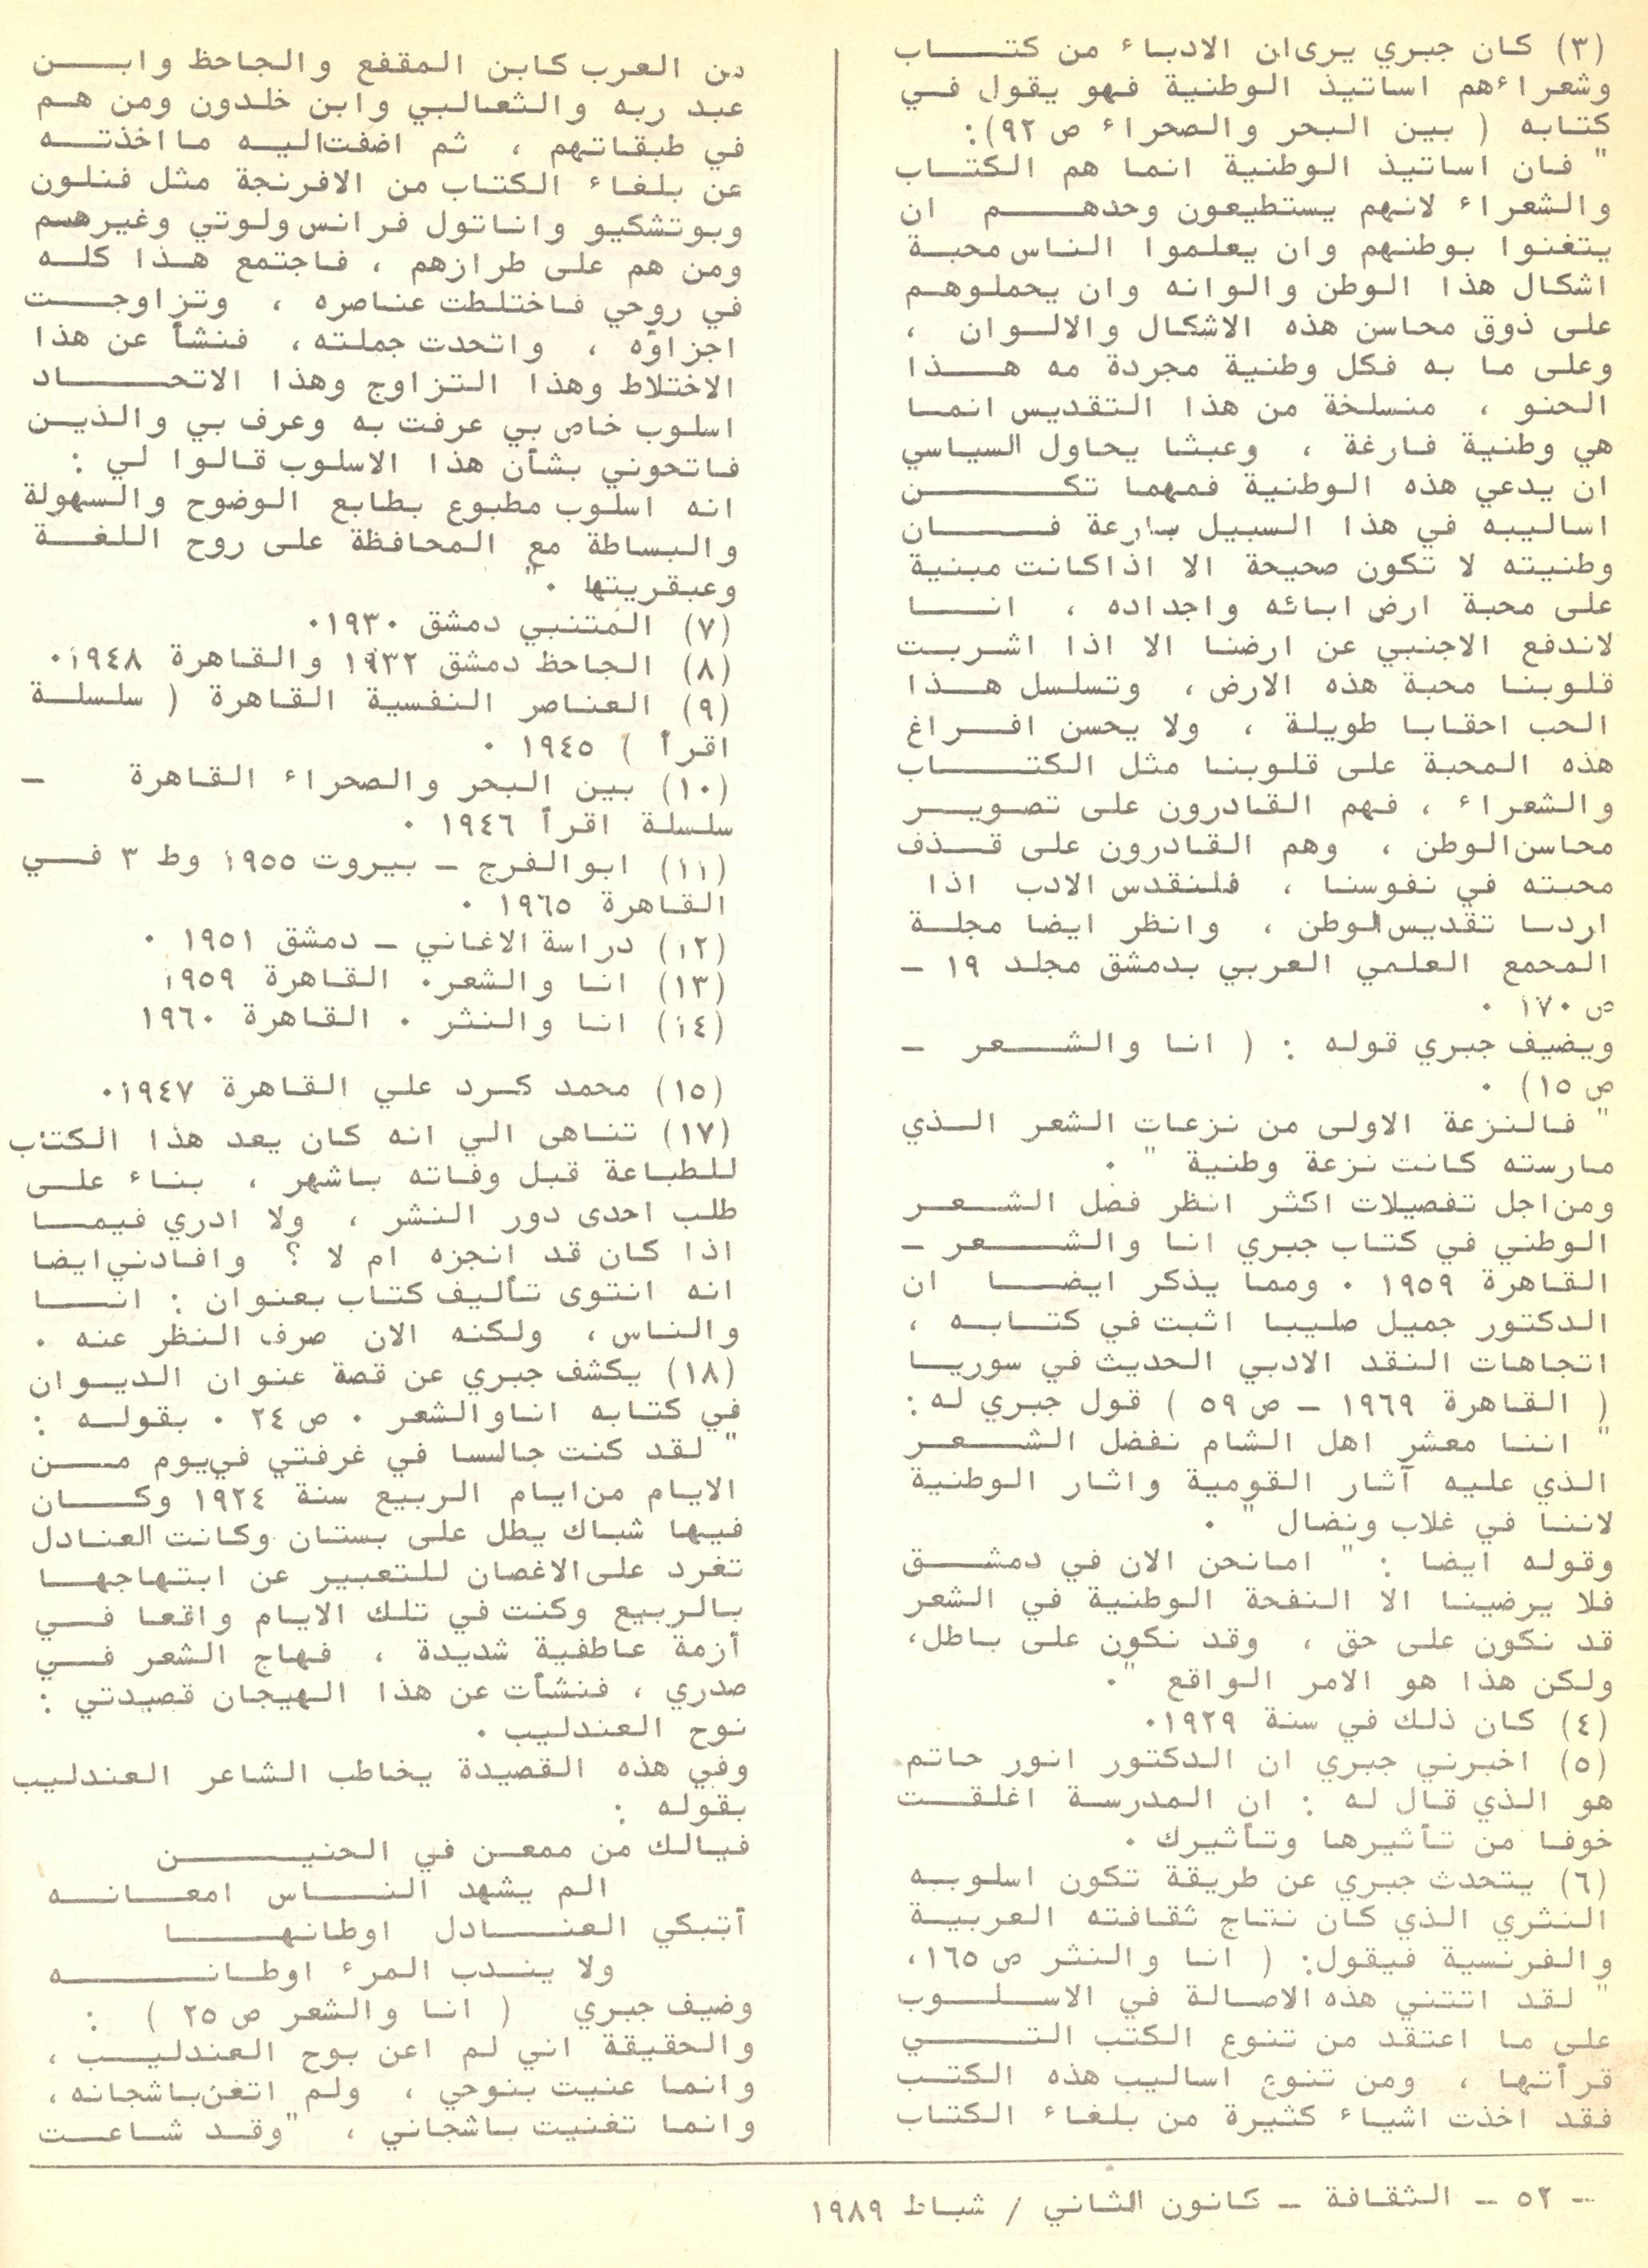 (٣) كان جبري يرى ان الادباء من كتاب
وشعراءهم اساتيذ الوطنية فهو يقول في
كتابه ( بين البحر والصحراء ص ٩٢):
" فان اساتيذ الوطنية انما هم الكتاب
والشعراء لانهم يستطيعون وحدهم ان
يتغنوا بوطنهم وان يعلموا الناس محبة
اشكال هذا الوطن والوانه وان يحملوهم
على ذوق محاسن هذه الاشكال والالوان ،
وعلى ما به فكل وطنية مجردة مه هذا
الحنو ، منسلخة من هذا التقديس انما
هي وطنية فارغة ، وعبثا يحاول السياسي
ان يدعي هذه الوطنية فمهما تكن
اساليبه في هذا السبيل بارعة فان
وطنيته لا تكون صحيحة الا اذا كانت مبنية
على محبة ارض ابائه واجداده ، انا
لاندفع الاجنبي عن ارضنا الا اذا اشربت
قلوبنا محبة هذه الارض ، وتسلسل هذا
الحب احقابا طويلة ، ولا يحسن افراغ
هذه المحبة على قلوبنا مثل الكتاب
والشعراء ، فهم القادرون على تصوير
محاسن الوطن ، وهم القادرون على قذف
محبته في نفوسنا ، فلنقدس الادب اذا
اردنا تقديس الوطن ، وانظر ايضا مجلة
المجمع العلمي العربي بدمشق مجلد ١٩ -
ص ١٧٠ .
ويضيف جبري قوله : ( انا والشعر -
ص ١٥) .
" فالنزعة الاولى من نزعات الشعر الذي
مارسته كانت نزعة وطنية " .
ومن اجل تفصيلات اكثر انظر فضل الشعر
الوطني في كتاب جبري انا والشعر -
القاهرة ١٩٥٩ . ومما يذكر ايضا ان
الدكتور جميل صليبا اثبت في كتابه ،
اتجاهات النقد الادبي الحديث في سوريا
( القاهرة ١٩٦٩ - ص ٥٩ ) قول جبري له :
" اننا معشر اهل الشام نفضل الشعر
الذي عليه آثار القومية واثار الوطنية
لاننا في غلاب ونضال " .
وقوله ايضا : " اما نحن الان في دمشق
فلا يرضينا الا النفحة الوطنية في الشعر
قد نكون على حق ، وقد نكون على باطل،
ولكن هذا هو الامر الواقع " .
(٤) كان ذلك في سنة ١٩٢٩.
(٥) اخبرني جبري ان الدكتور انور حاتم
هو الذي قال له : ان المدرسة اغلقت
خوفا من تأثيرها وتأثيرك .
(٦) يتحدث جبري عن طريقة تكون اسلوبه
النثري الذي كان نتاج ثقافته العربية
والفرنسية فيقول: ( انا والنثر ص ١٦٥،
" لقد اتتني هذه الاصالة في الاسلوب
على ما اعتقد من تنوع الكتب التي
قرأتها ، ومن تنوع اساليب هذه الكتب
فقد اخذت اشياء كثيرة من بلغاء الكتاب
من العرب كابن المقفع والجاحظ وابن
عبد ربه والثعالبي وابن خلدون ومن هم
في طبقاتهم ، ثم اضفت اليه ما اخذته
عن بلغاء الكتاب من الافرنجة مثل فنلون
وبوتشكيو واناتول فرانس ولوتي وغيرهم
ومن هم على طرازهم ، فاجتمع هذا كله
في روحي فاختلطت عناصره ، وتزاوجت
اجزاؤه ، واتحدت جملته ، فنشأ عن هذا
الاختلاط وهذا التزاوج وهذا الاتحاد
اسلوب خاص بي عرفت به وعرف بي والذين
فاتحوني بشأن هذا الاسلوب قالوا لي :
انه اسلوب مطبوع بطابع الوضوح والسهولة
والبساطة مع المحافظة على روح اللغة
وعبقريتها ."
(٧) المتنبي دمشق ١٩٣٠.
(٨) الجاحظ دمشق ١٩٣٢ والقاهرة ١٩٤٨.
(٩) العناصر النفسية القاهرة ( سلسلة
اقرأ ) ١٩٤٥ .
(١٠) بين البحر والصحراء القاهرة -
سلسلة اقرأ ١٩٤٦ .
(١١) ابو الفرج - بيروت ١٩٥٥ وط ٣ في
القاهرة ١٩٦٥ .
(١٢) دراسة الاغاني - دمشق ١٩٥١ .
(١٣) انا والشعر. القاهرة ١٩٥٩
(١٤) انا والنثر . القاهرة ١٩٦٠
(١٥) محمد كرد علي القاهرة ١٩٤٧.
(١٧) تناهى الي انه كان يعد هذا الكتاب
للطباعة قبل وفاته باشهر ، بناء على
طلب احدى دور النشر ، ولا ادري فيما
اذا كان قد انجزه ام لا ؟ وافادني ايضا
انه انتوى تأليف كتاب بعنوان : انا
والناس، ولكنه الان صرف النظر عنه .
(١٨) يكشف جبري عن قصة عنوان الديوان
في كتابه انا والشعر . ص ٢٤ . بقوله :
" لقد كنت جالسا في غرفتي في يوم من
الايام من ايام الربيع سنة ١٩٢٤ وكان
فيها شباك يطل على بستان وكانت العنادل
تغرد على الاغصان للتعبير عن ابتهاجها
بالربيع وكنت في تلك الايام واقعا في
أزمة عاطفية شديدة ، فهاج الشعر في
صدري ، فنشأت عن هذا الهيجان قصيدتي :
نوح العندليب .
وفي هذه القصيدة يخاطب الشاعر العندليب
بقوله :
فيالك من ممعن في الحنين
الم يشهد الناس امعانه
أتبكي العنادل اوطانها
ولا يندب المرء اوطانه
وضيف جبري ( انا والشعر ص ٢٥ ) :
والحقيقة اني لم اعن بوح العندليب ،
وانما عنيت بنوحي ، ولم اتغن باشجانه ،
وانما تغنيت باشجاني ، "وقد شاعت
- ٥٢ - الثقافة - كانون الثاني / شباط ١٩٨٩